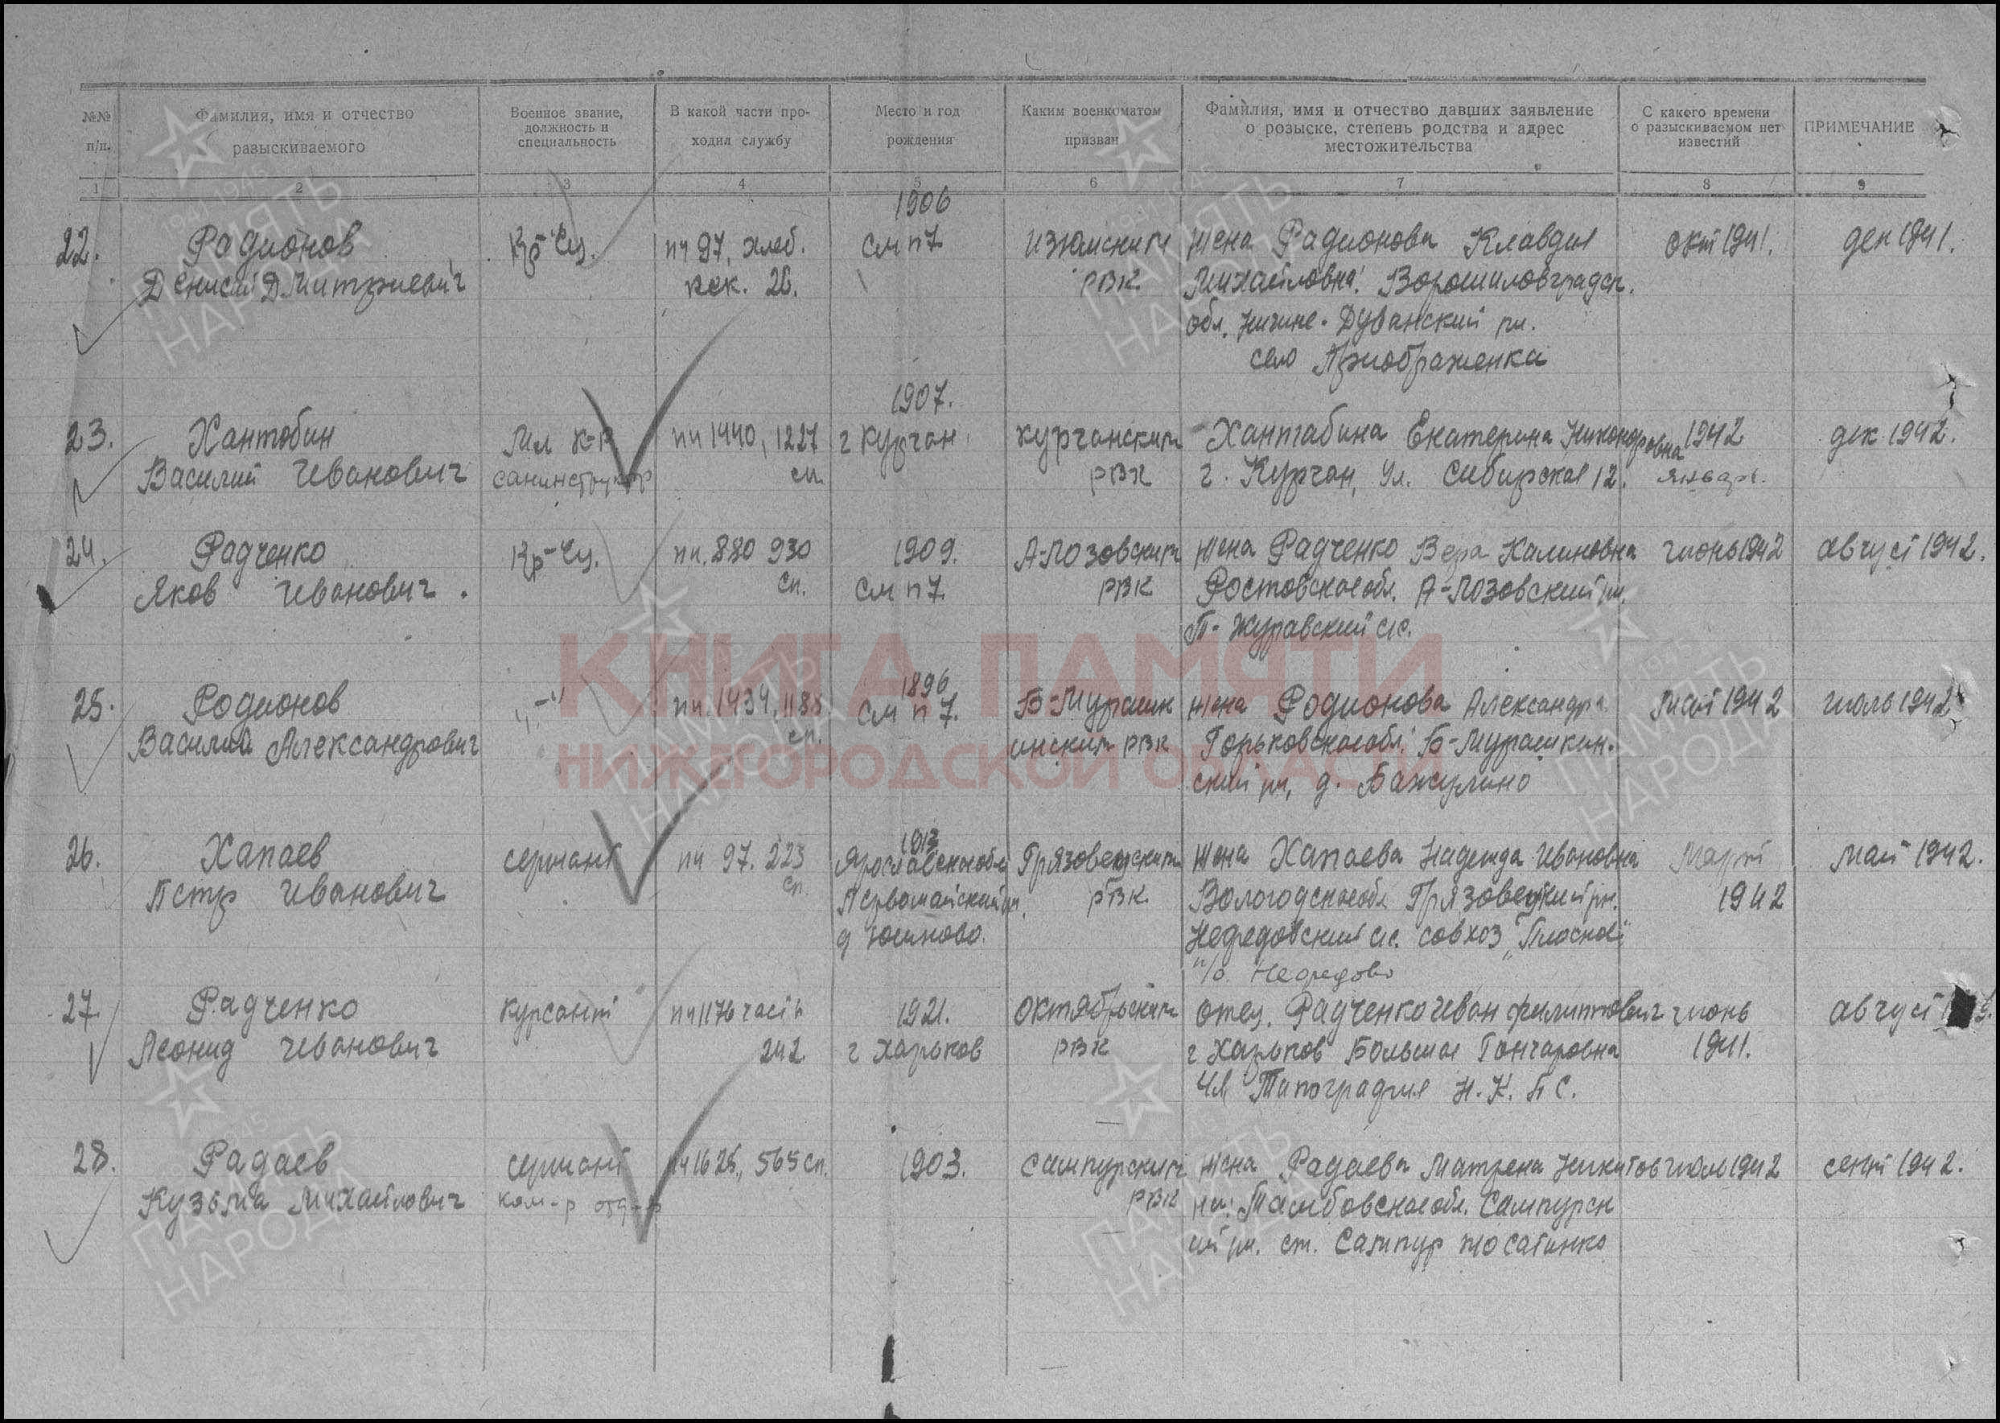 №№ п/п.
Фамилия, имя и отчество разыскиваемого
Военное звание, должность и специальность
В какой части проходил службу
Место и год рождения
Каким военкоматом призван
Фамилия, имя и отчество давших заявление о розыске, степень родства и адрес местожительства
С какого времени о разыскиваемом нет известий
ПРИМЕЧАНИЕ
1 2 3 4 5 6 7 8 9
1906
22. Радионов Кр-ец. пч 97, хлеб. см п 7. Изюмским жена Радионова Клавдия окт 1941. дек 1941.
Денисий Дмитриевич пек. 26. РВК Михайловна. Ворошиловградск.
обл. Нижне-Дуванский рн.
село Приображенка
1907.
23. Хантобин Мл к-р пч 1440, 1227 г Курган. Курганским Хантабина Екатерина Никоноровна 1942 дек 1942.
Василий Иванович санинструктор сп. РВК г. Курган, ул. Сибирская 12. январь.
24. Радченко Кр-ец. пч. 880 930 1909. А-Лозовским жена Радченко Вера Калиновна июнь 1942 август 1942.
Яков Иванович. сп. см п 7. РВК Ростовская обл. А-Лозовский рн.
Т-Журавский с/с.
1896
25. Родионов "-" пч. 1434, 1188 см п 7. Б-Мурашк жена Родионова Александра Май 1942 июль 1942
Василий Александрович сп. инским РВК Горьковская обл. Б-Мурашкин-
ский рн, д. Бажулино
1913
26. Хапаев сержант пч 97. 223 Ярославская обл Грязовецким жена Хапаева Надежда Ивановна Март май 1942.
Петр Иванович сп. Первомайский рн. РВК Вологодская обл Грязовецкий рн. 1942
д Юсиково. Нефедовский с/с. совхоз "Плоское"
п/о. Нефедово
27. Радченко курсант пч 1176 часть 1921. Октябрьским отец. Радченко Иван Филиппович июнь август
Леонид Иванович 242 г Харьков РВК г Харьков Большая Гончаровна 1941.
Типография Н.К.П.С.
28. Радаев сержант пч 1625, 565 сп. 1903. Сампурским жена Радаева Матрена Никитов июль 1942 сент 1942.
Кузьма Михайлович ком-р отд-я РВК на. Тамбовская обл. Сампурск
ий рн. ст. Сампур
КНИГА ПАМЯТИ
НИЖЕГОРОДСКОЙ ОБЛАСТИ
ПАМЯТЬ НАРОДА
1941 1945